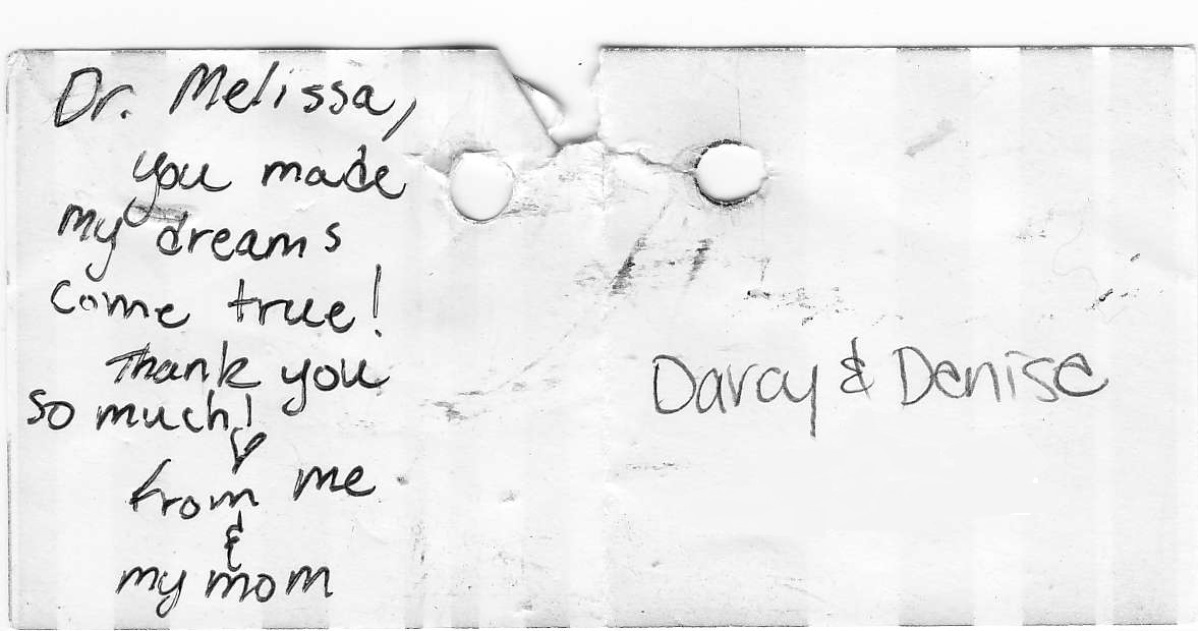 Dr. Melissa,
you made
my dreams
come true!
Thank you
so much!
♥
from me
&
my mom
Darcy & Denise